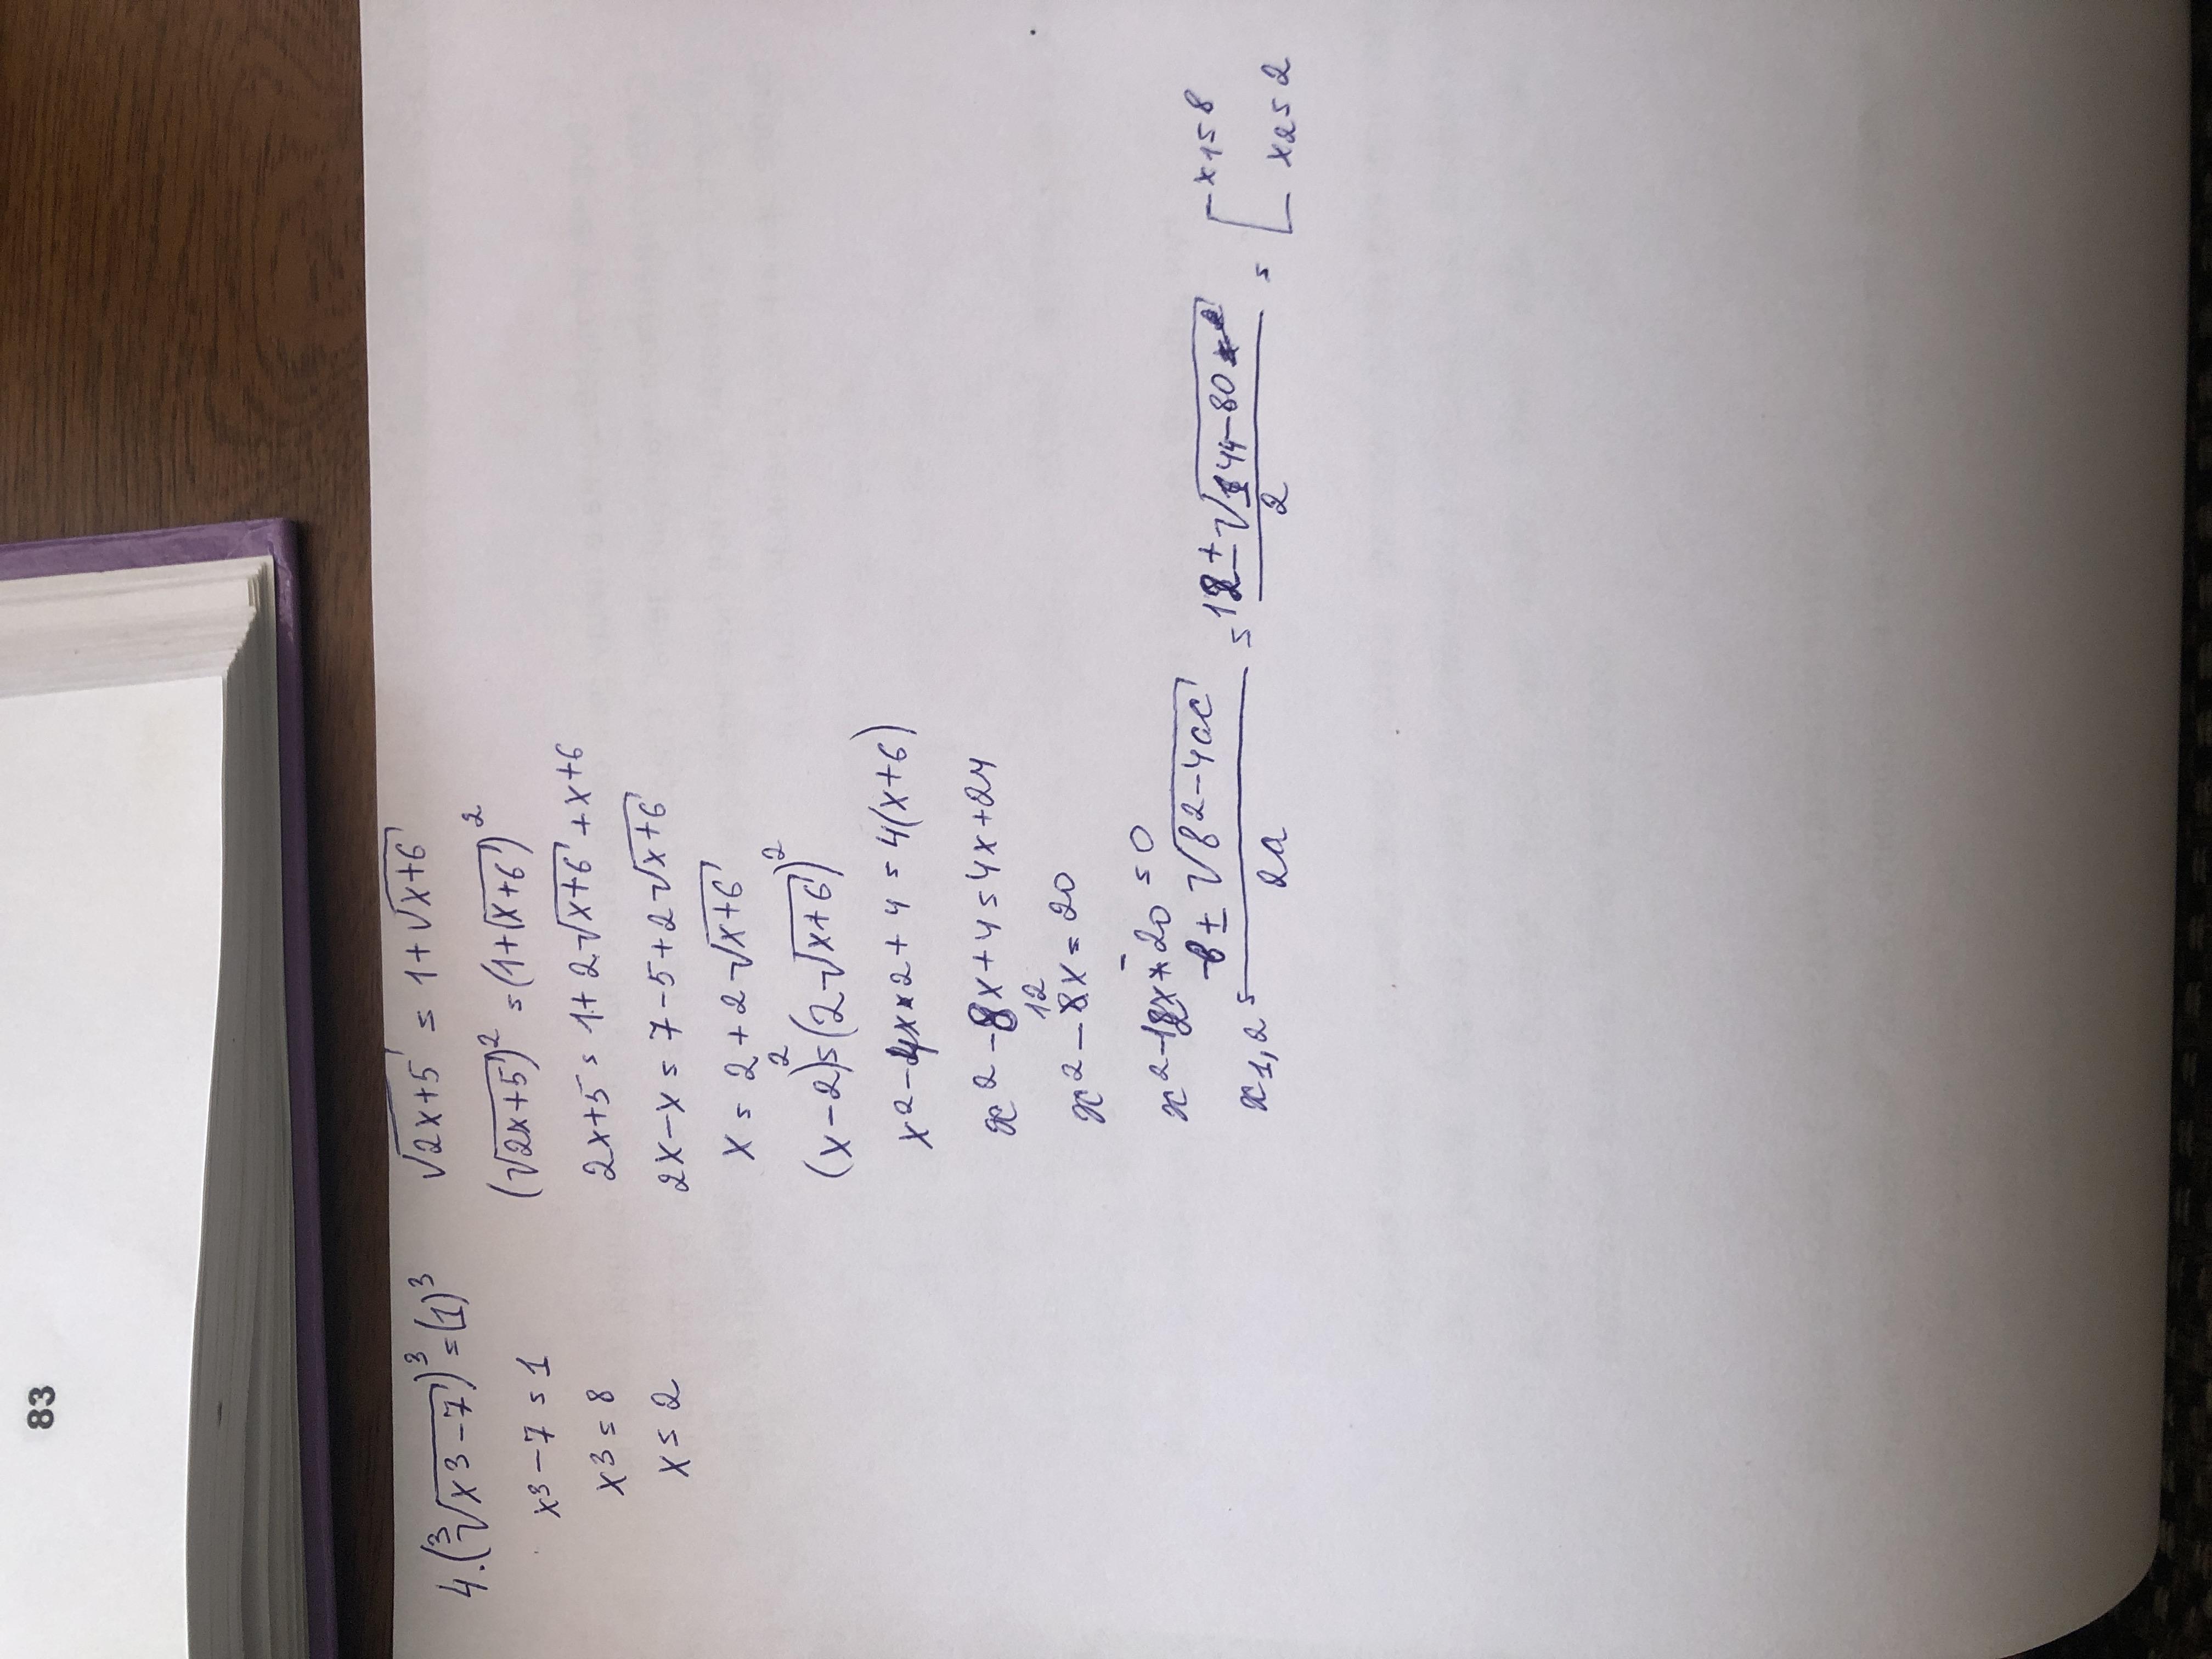 83
4. (³√x3-7)³ = (1)³
x3 - 7 = 1
x3 = 8
x = 2
√2x+5 = 1+√x+6
(√2x+5)² = (1+√x+6)²
2x+5 = 1+2√x+6 + x+6
2x-x = 7-5+2√x+6
x = 2+2√x+6
(x-2)² = (2√x+6)²
x2-4x2+4 = 4(x+6)
x2-8x+4 = 4x+24
12
x2-8x = 20
x2-12x-20 = 0
x1,2 = -b±√b2-4ac / 2a = 12±√144-80 / 2 = [ x1=8
x2=2